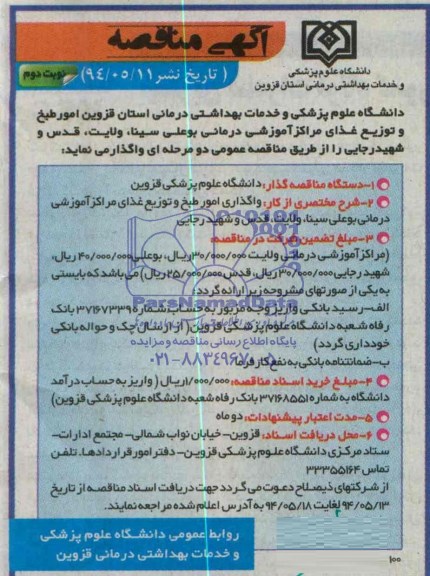 آگهی مناقصه
دانشگاه علوم پزشکی
و خدمات بهداشتی درمانی استان قزوین
( تاریخ نشر ۹۴/۰۵/۱۱) نوبت دوم
دانشگاه علوم پزشکی و خدمات بهداشتی درمانی استان قزوین امور طبخ
و توزیع غذای مراکز آموزشی درمانی بوعلی سینا، ولایت، قدس و
شهید رجایی را از طریق مناقصه عمومی دو مرحله ای واگذار می نماید:
۱-دستگاه مناقصه گذار: دانشگاه علوم پزشکی قزوین
۲-شرح مختصری از کار: واگذاری امور طبخ و توزیع غذای مراکز آموزشی
درمانی بوعلی سینا، ولایت، قدس و شهید رجایی
۳-مبلغ تضمین شرکت در مناقصه:
(مراکز آموزشی درمانی ولایت ۳۰/۰۰۰/۰۰۰ریال، بوعلی۴۰/۰۰۰/۰۰۰ ریال،
شهید رجایی۳۰/۰۰۰/۰۰۰ریال، قدس۲۵/۰۰۰/۰۰۰ریال) می باشد که بایستی
به یکی از صورتهای مشروحه زیر ارائه گردد:
الف-رسید بانکی واریز وجه مزبور به حساب شماره ۳۷۱۶۷۳۳۹ بانک
رفاه شعبه دانشگاه علوم پزشکی قزوین (از ارسال چک و حواله بانکی
خودداری گردد)
ب-ضمانتنامه بانکی به نفع کارفرما
۴-مبلغ خرید اسناد مناقصه: ۱/۰۰۰/۰۰۰ریال ( واریز به حساب درآمد
دانشگاه به شماره ۳۷۱۶۸۵۵۱ بانک رفاه شعبه دانشگاه علوم پزشکی قزوین)
۵-مدت اعتبار پیشنهادات: دو ماه
۶-محل دریافت اسناد: قزوین-خیابان نواب شمالی-مجتمع ادارات-
ستاد مرکزی دانشگاه علوم پزشکی قزوین-دفتر امور قراردادها. تلفن
تماس ۳۳۳۵۵۱۶۴
از شرکتهای ذیصلاح دعوت می گردد جهت دریافت اسناد مناقصه از تاریخ
۹۴/۰۵/۱۳ لغایت ۹۴/۰۵/۱۸ به آدرس اعلام شده مراجعه نمایند.
روابط عمومی دانشگاه علوم پزشکی
و خدمات بهداشتی درمانی قزوین
۱۰۰
ParsNamadData
پایگاه اطلاع رسانی مناقصه و مزایده
۰۲۱-۸۸۳۴۹۶۷۰